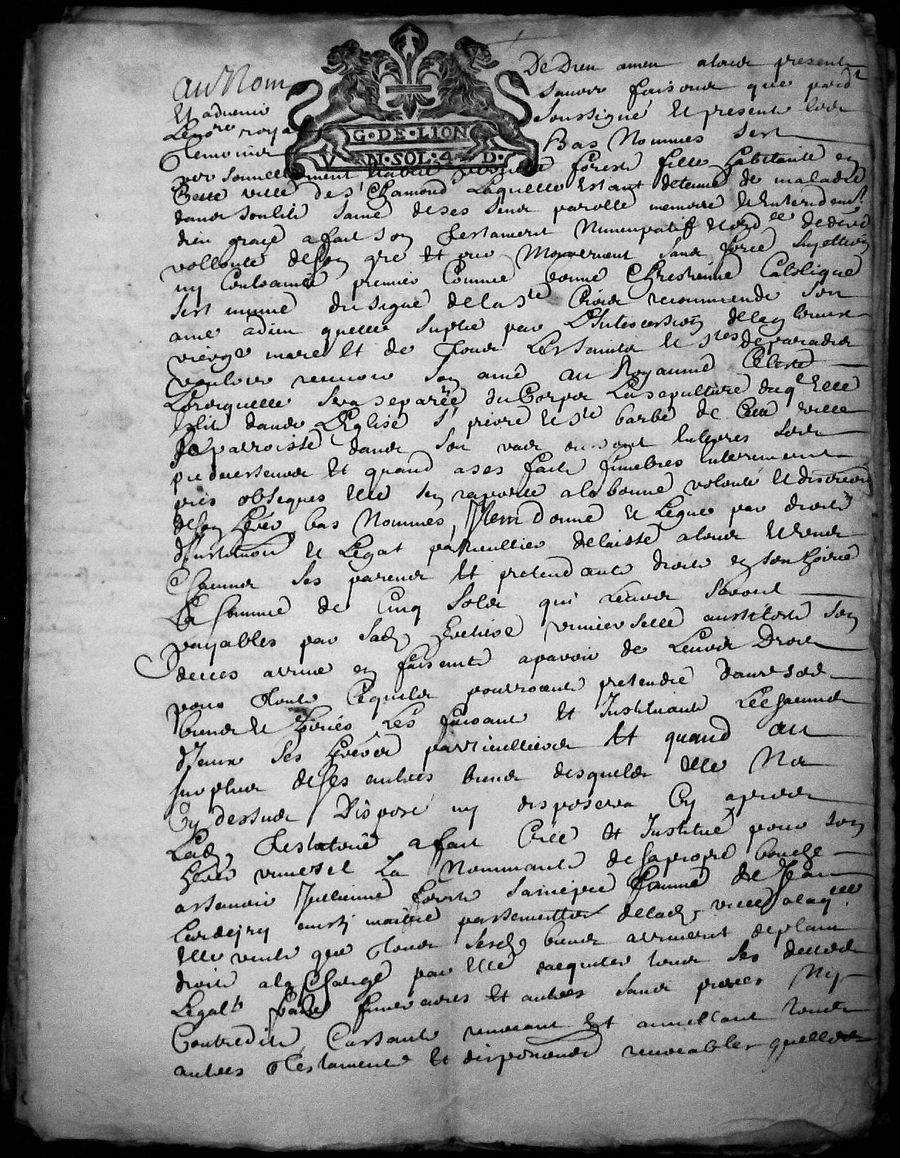 Au Nom De Dieu amen a tous presents
Et advenir savoir faisons que pard.t
Le no.re royal soussigné Et presents les
G·DE·LION
V N·SOL·4 D·
Temoins Bas Nommés sest
personnellement Etablie foresi fille habitante en
Cette ville de S.t Chamond Laquelle Estant detenue de maladie
dans son lit saine de ses sens parolle memoire Et Entendem.t
dieu grace a fait son Testament Nuncupatif Et ord.ce de derniere
vollonté de son gré Et pur Mouvement sans force sugettion
ny Contrainte premier Comme bonne Chrestienne Catolique
sest munie du signe de la S.te Croix recommende son
ame a dieu quelle suplie par L'Intercession de la bien h.se
vierge marie Et de Tous Les saints Et S.tes de paradis
vouloir recevoir son ame au Royaume Celeste
Lorsquelle sera separée du Corps La sepulture duq.l Elle
Eslit dans L'Eglise S.t pierre Et S.te barbe de Cette ville
sa parroisse dans son vas ou sont Enterrés ses
predecesseurs Et quand a ses frais funebres Enterrement
obseques Elle sen raporte a la bonne volonté Et discretion
de son her.er bas Nommés, Item donne Et Legue par droit
d'Institution Et Legat particullier delaisse a tous Et un
Chacun ses parents Et pretendants droit en son hoirie
La somme de Cinq Sols qui Leurs seront
payables par sad. heritiere universelle aussitost son
deces arrivé en faisant apavoir de Leurs Droit
pour Tout Ce quils pourroient pretendre dans sesd.
biens Et hoiries Les faisant Et Instituant Les Chacun
d'Eux ses heritiers particulliers Et quand au
surplus de ses autres biens desquels Elle Na
Cy dessus Disposé ny disposera Cy apres
Lad. Testatrice a fait Créé Et Institué pour son
heritiere univers.le La Nommant de sa propre bouche
assavoir Jullienne forest sa niepce femme de Jean
aussi maitre passementier de lad. ville a laq.lle
Elle veut que Tous sesd. biens arrivent de plain
droit a la Charge par Elle dacquiter tous ses dettes
Legats frais funeraires Et autres sans proces Ny
Contredits Cassant revocant Et annullant touts
autres Testaments Et dispositions revocables quelles